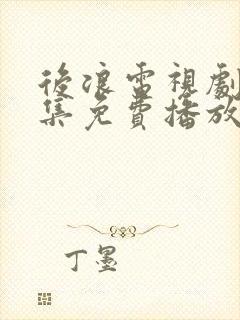 後浪雷視劇
集免費播放
丁墨